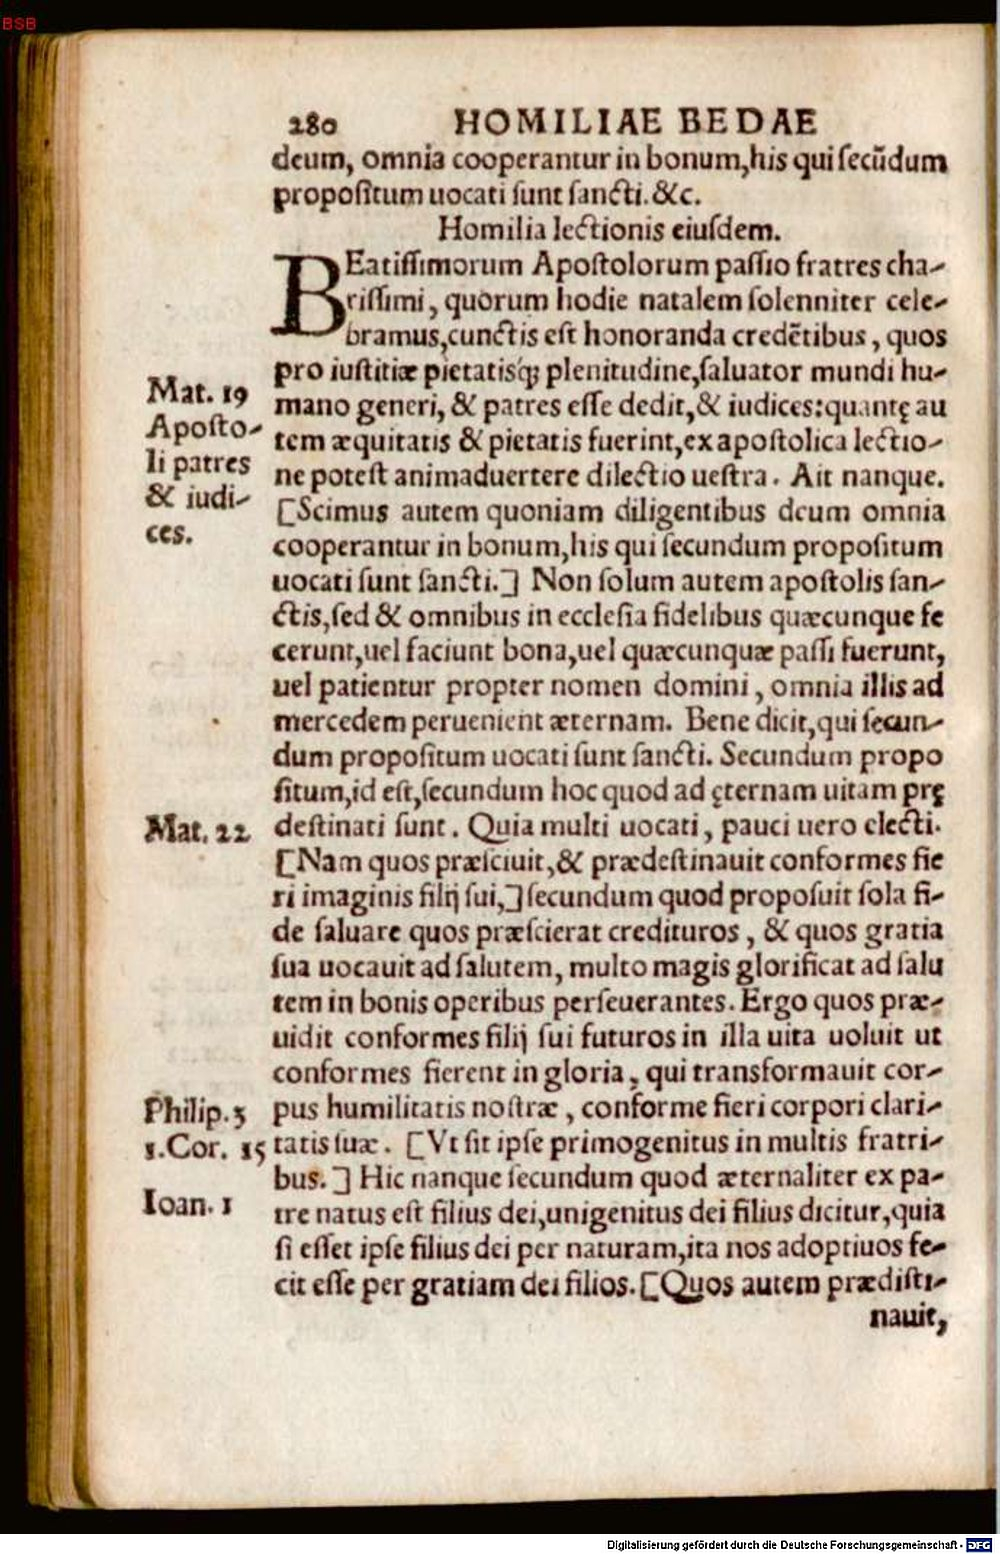 BSB
280 HOMILIAE BEDAE
deum, omnia cooperantur in bonum,his qui ſecūdum
propoſitum uocati ſunt ſancti.&c.
Homilia lectionis eiuſdem.
BEatiſſimorum Apoſtolorum paſſio fratres cha-
riſſimi, quorum hodie natalem ſolenniter cele-
bramus,cunctis eſt honoranda credētibus, quos
pro iuſtitiæ pietatisq́; plenitudine,ſaluator mundi hu-
Mat. 19
mano generi, & patres eſſe dedit,& iudices:quantę au
Apoſto-
tem æquitatis & pietatis fuerint,ex apoſtolica lectio-
li patres
ne poteſt animaduertere dilectio ueſtra. Ait nanque.
& iudi-
[Scimus autem quoniam diligentibus deum omnia
ces.
cooperantur in bonum,his qui ſecundum propoſitum
uocati ſunt ſancti.] Non ſolum autem apoſtolis ſan-
ctis,ſed & omnibus in eccleſia fidelibus quæcunque fe
cerunt,uel faciunt bona,uel quæcunquæ paſſi fuerunt,
uel patientur propter nomen domini, omnia illis ad
mercedem peruenient æternam. Bene dicit,qui ſecun-
dum propoſitum uocati ſunt ſancti. Secundum propo
ſitum,id eſt,ſecundum hoc quod ad ęternam uitam prę
Mat. 22
deſtinati ſunt. Quia multi uocati, pauci uero electi.
[Nam quos præſciuit,& prædeſtinauit conformes fie
ri imaginis filij ſui,] ſecundum quod propoſuit ſola fi-
de ſaluare quos præſcierat credituros, & quos gratia
ſua uocauit ad ſalutem, multo magis glorificat ad ſalu
tem in bonis operibus perſeuerantes. Ergo quos præ-
uidit conformes filij ſui futuros in illa uita uoluit ut
conformes fierent in gloria, qui transformauit cor-
Philip. 3
pus humilitatis noſtræ, conforme fieri corpori clari-
1.Cor. 15
tatis ſuæ. [Vt ſit ipſe primogenitus in multis fratri-
bus.] Hic nanque ſecundum quod æternaliter ex pa-
Ioan. 1
tre natus eſt filius dei,unigenitus dei filius dicitur,quia
ſi eſſet ipſe filius dei per naturam,ita nos adoptiuos fe-
cit eſſe per gratiam dei filios. [Quos autem prædiſti-
nauit,
Digitalisierung gefördert durch die Deutsche Forschungsgemeinschaft - DFG